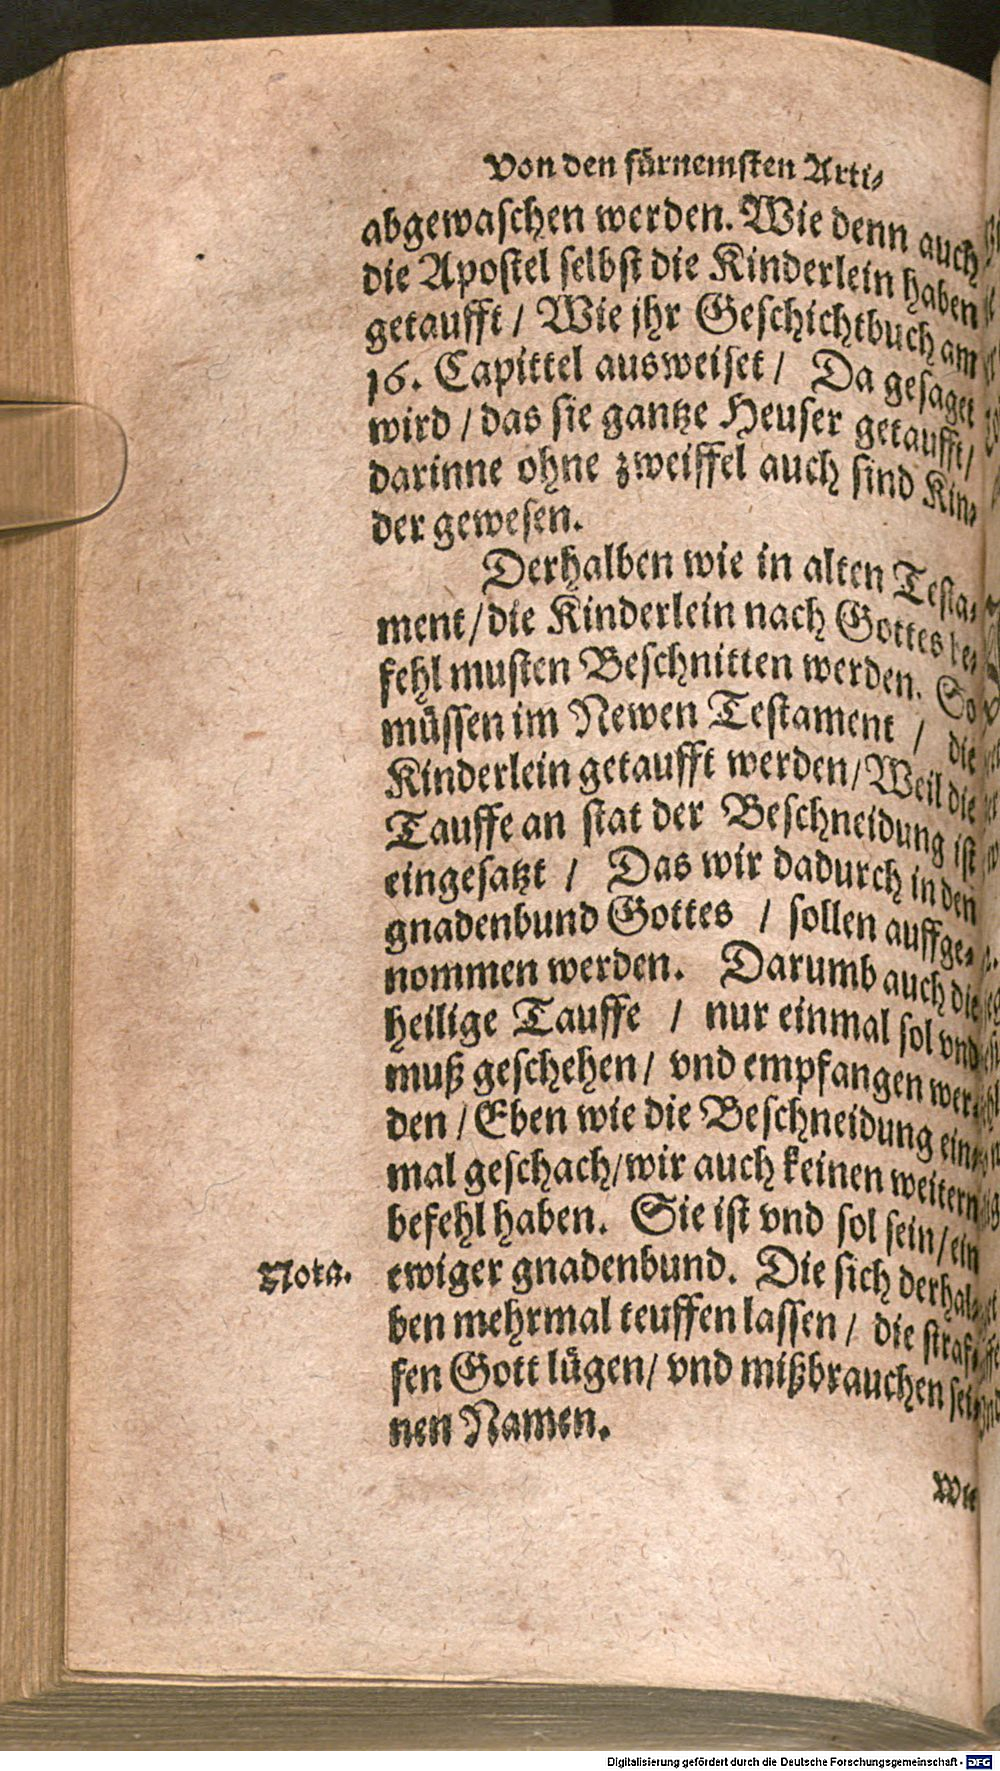 Von den fürnemsten Arti-
abgewaschen werden. Wie denn auch
die Apostel selbst die Kinderlein haben
getaufft / Wie jhr Geschichtbuch am
16. Capittel ausweiset / Da gesaget
wird / das sie gantze Heuser getaufft /
darinne ohne zweiffel auch sind Kin-
der gewesen.
Derhalben wie in alten Testa-
ment / die Kinderlein nach Gottes be-
fehl musten Beschnitten werden. So
müssen im Newen Testament / die
Kinderlein getaufft werden / Weil die
Tauffe an stat der Beschneidung ist
eingesatzt / Das wir dadurch in den
gnadenbund Gottes / sollen auffge-
nommen werden. Darumb auch die
heilige Tauffe / nur einmal sol vnd
muß geschehen / vnd empfangen wer-
den / Eben wie die Beschneidung ein-
mal geschach / wir auch keinen weitern
befehl haben. Sie ist vnd sol sein / ein
Nota. ewiger gnadenbund. Die sich derhal-
ben mehrmal teuffen lassen / die straf-
fen Gott lügen / vnd mißbrauchen sei-
nen Namen.
Wie
Digitalisierung gefördert durch die Deutsche Forschungsgemeinschaft - DFG